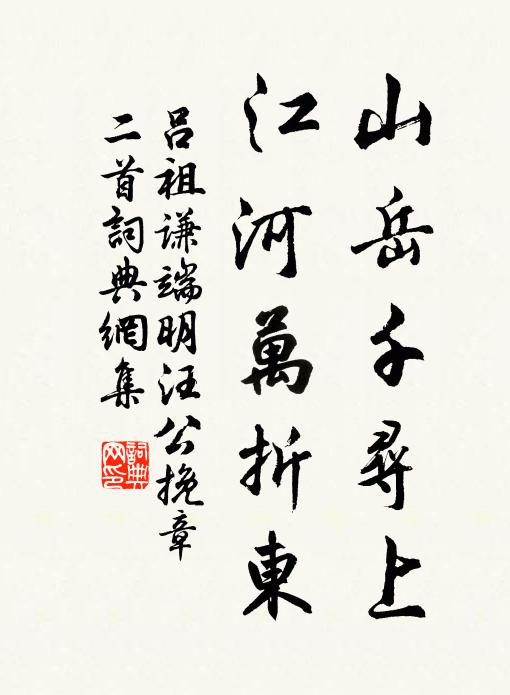 山岳千尋上
江河萬折東
呂祖谦端明汪公挽章
二首詞典網集
詞典
网印